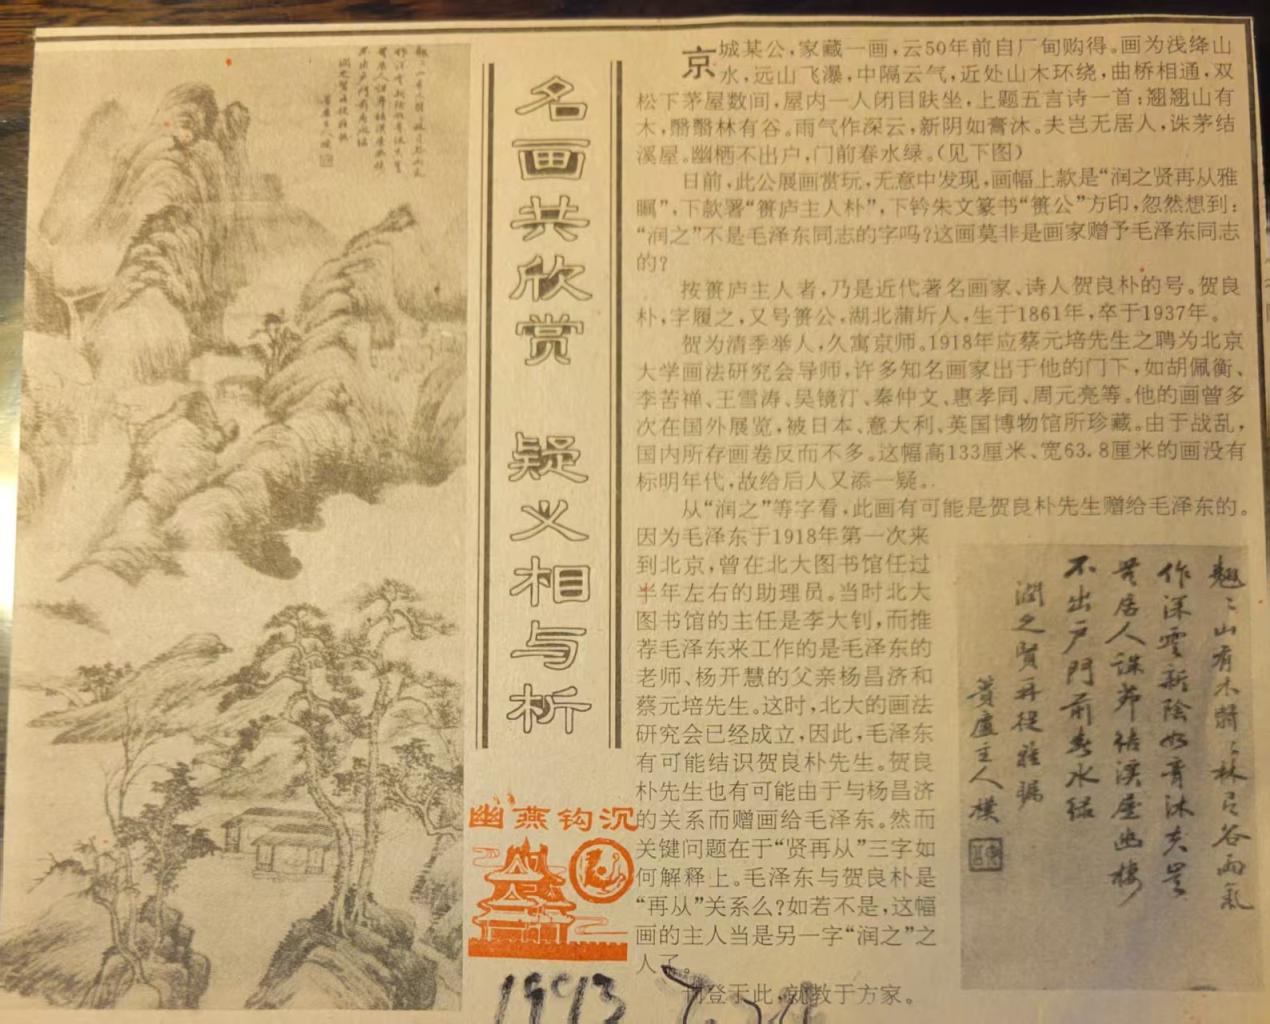 名画共欣赏 疑义相与析
京城某公,家藏一画,云50年前自厂甸购得。画为浅绛山
水,远山飞瀑,中隔云气,近处山木环绕,曲桥相通,双
松下茅屋数间,屋内一人闭目趺坐,上题五言诗一首:翘翘山有
木,翳翳林有谷。雨气作深云,新阴如膏沐。夫岂无居人,诛茅结
溪屋。幽栖不出户,门前春水绿。(见下图)
日前,此公展画赏玩,无意中发现,画幅上款是“润之贤再从雅
瞩”,下款署“篑庐主人朴”,下钤朱文篆书“篑公”方印,忽然想到:
“润之”不是毛泽东同志的字吗?这画莫非是画家赠予毛泽东同志
的?
按篑庐主人者,乃是近代著名画家、诗人贺良朴的号。贺良
朴,字履之,又号篑公,湖北蒲圻人,生于1861年,卒于1937年。
贺为清季举人,久寓京师。1918年应蔡元培先生之聘为北京
大学画法研究会导师,许多知名画家出于他的门下,如胡佩衡、
李苦禅、王雪涛、吴镜汀、秦仲文、惠孝同、周元亮等。他的画曾多
次在国外展览,被日本、意大利、英国博物馆所珍藏。由于战乱,
国内所存画卷反而不多。这幅高133厘米、宽63.8厘米的画没有
标明年代,故给后人又添一疑。
从“润之”等字看,此画有可能是贺良朴先生赠给毛泽东的。
因为毛泽东于1918年第一次来
到北京,曾在北大图书馆任过
半年左右的助理员。当时北大
图书馆的主任是李大钊,而推
荐毛泽东来工作的是毛泽东的
老师、杨开慧的父亲杨昌济和
蔡元培先生。这时,北大的画法
研究会已经成立,因此,毛泽东
有可能结识贺良朴先生。贺良
朴先生也有可能由于与杨昌济
的关系而赠画给毛泽东。然而
关键问题在于“贤再从”三字如
何解释上。毛泽东与贺良朴是
“再从”关系么?如若不是,这幅
画的主人当是另一字“润之”之
人了。
刊登于此,就教于方家。
翘〻山有木翳〻林有谷雨氣
作深雲新陰如膏沐夫豈
無居人誅茅結溪屋幽棲
不出戸門前春水緑
潤之賢再從雅矚
簣廬主人樸
幽燕钩沉
1993